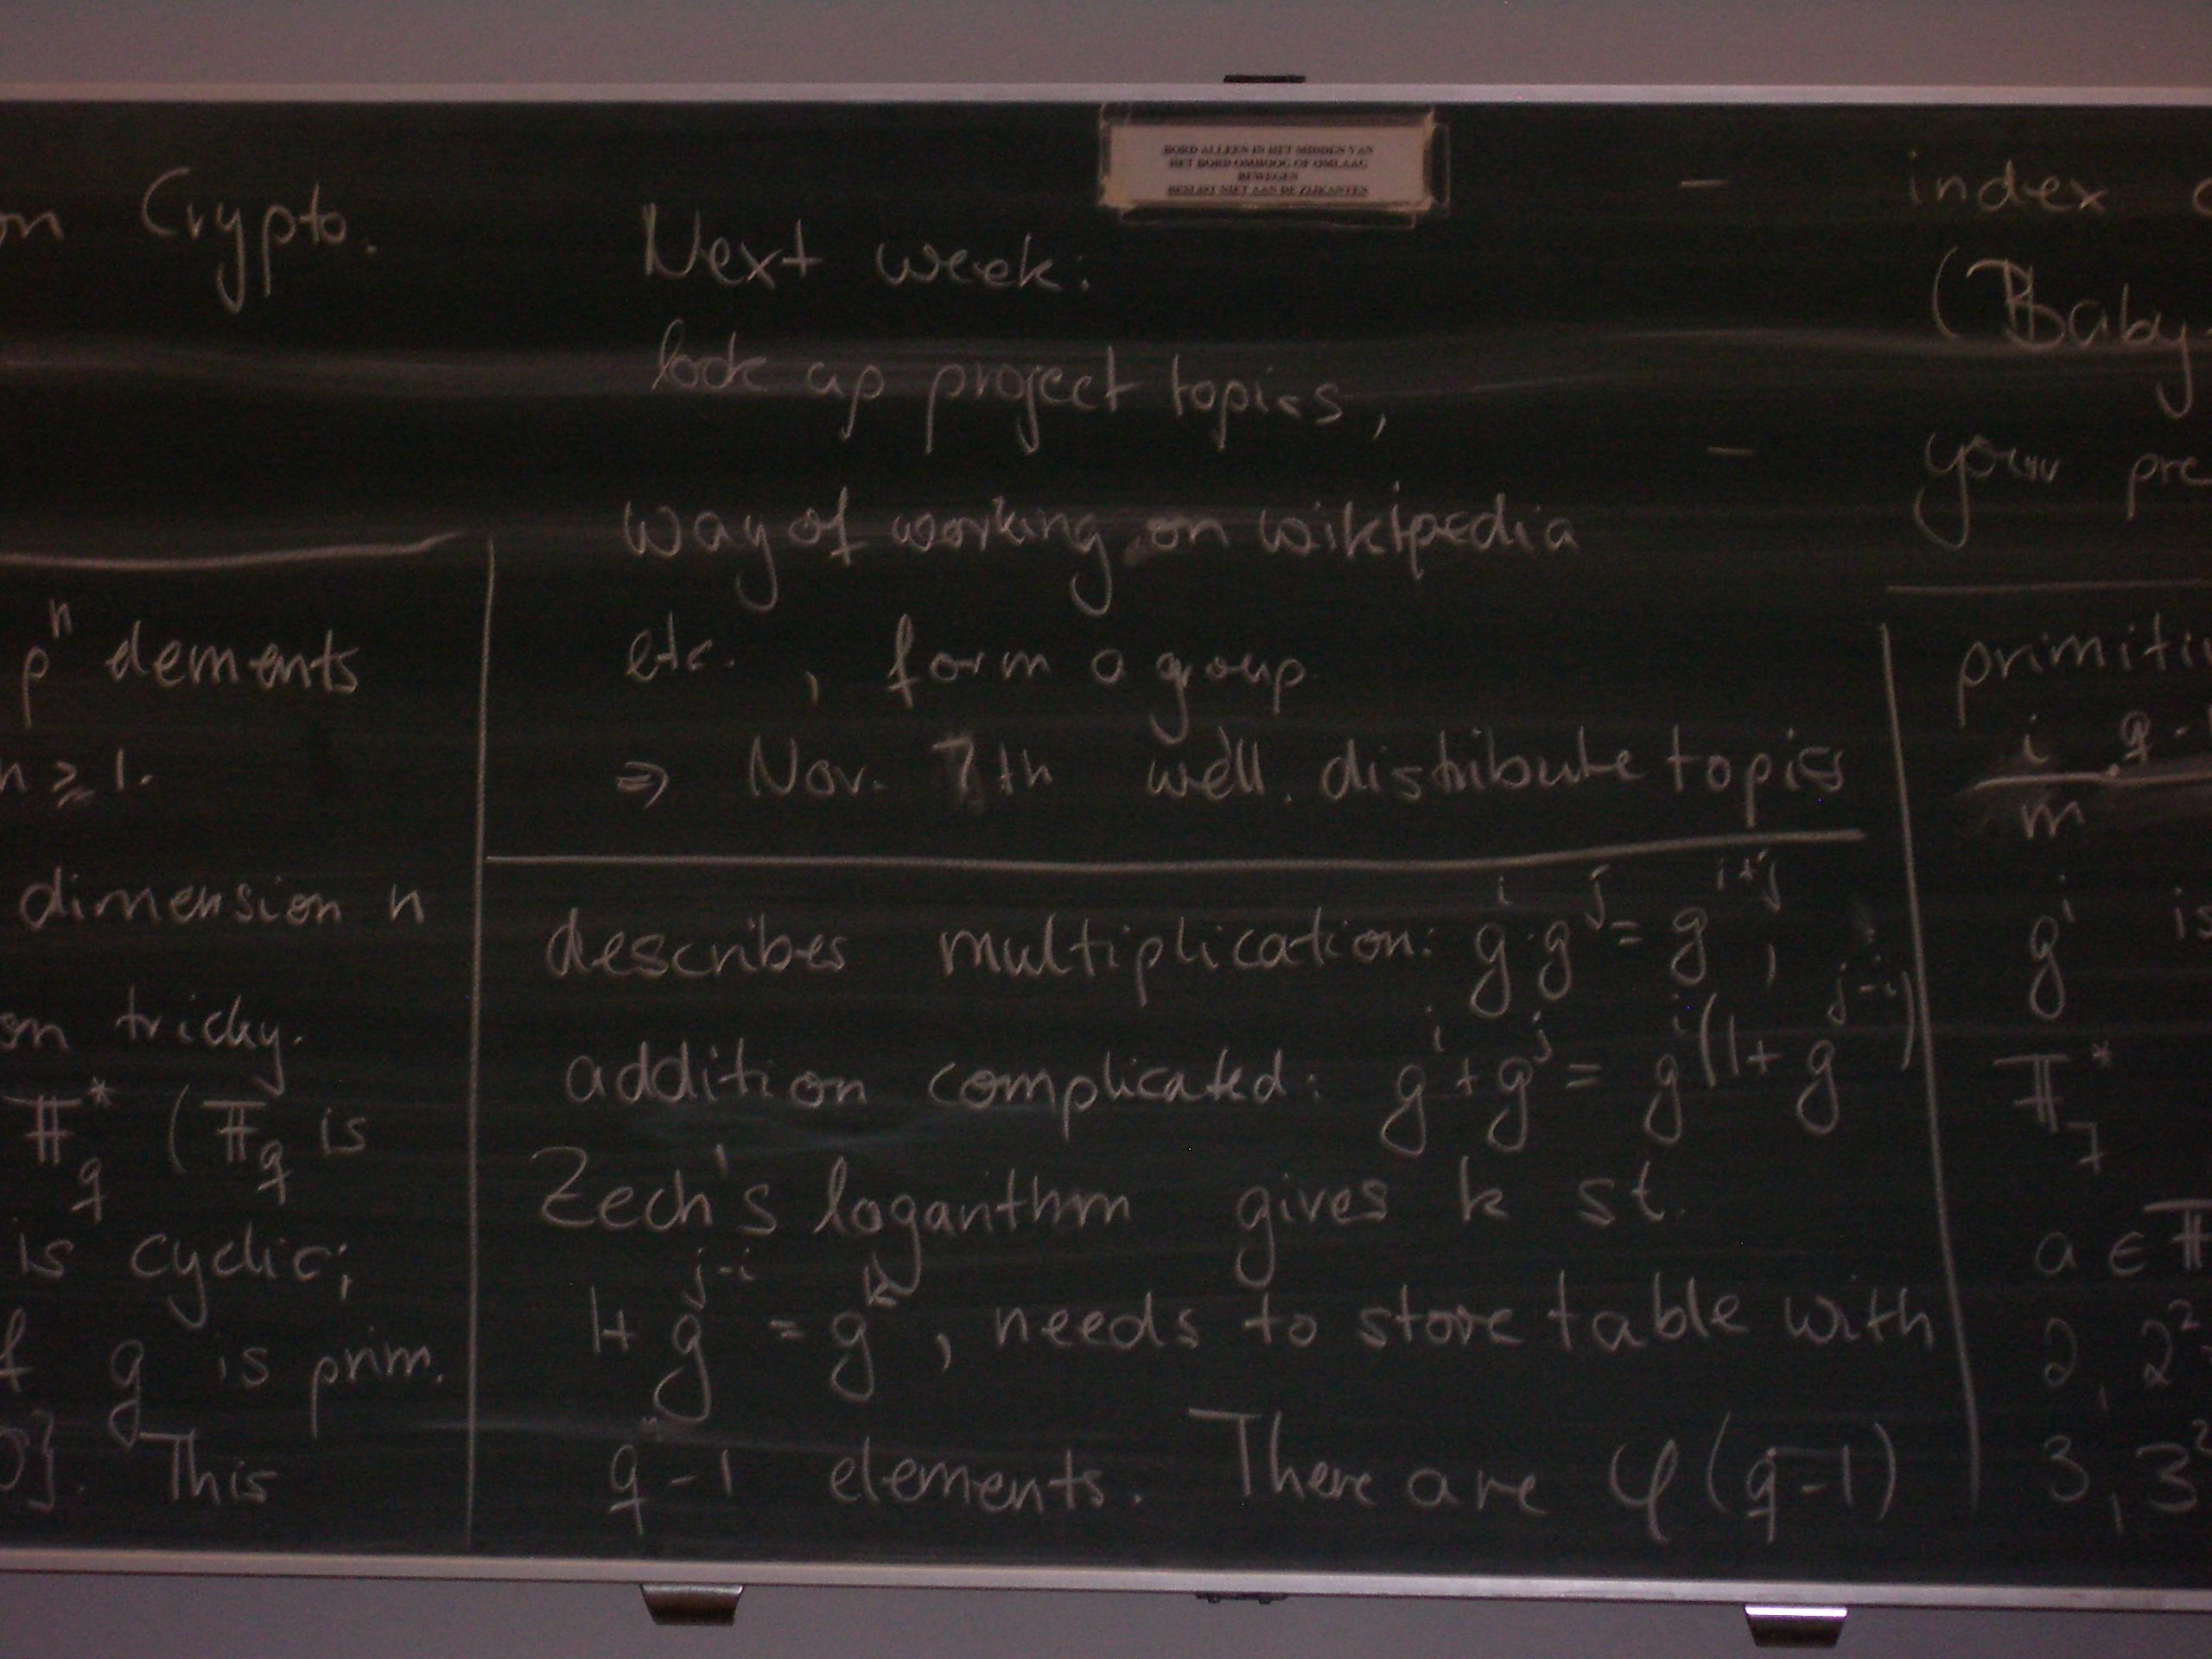 BORD ALLEEN IN HET MIDDEN VAN
HET BORD OMHOOG OF OMLAAG
BEWEGEN
BESLIST NIET AAN DE ZIJKANTEN
on Crypto.
pⁿ elements
n ≥ 1.
dimension n
on tricky.
𝔽q* (𝔽q is
is cyclic;
f g is prim.
0}. This
Next week:
look up project topics,
way of working on wikipedia
etc., form a group
⇒ Nov. 7th we'll distribute topics
describes multiplication: gⁱ·gʲ = gⁱ⁺ʲ,
addition complicated: gⁱ + gʲ = gⁱ(1 + gʲ⁻ⁱ)
Zech's logarithm gives k st.
1 + gʲ⁻ⁱ = gᵏ, needs to store table with
q-1 elements. There are φ(q-1)
- index
(Baby
- your pre
primitiv
i · q-
m
gⁱ is
𝔽₇*
a ∈ 𝔽
2, 2²
3, 3²